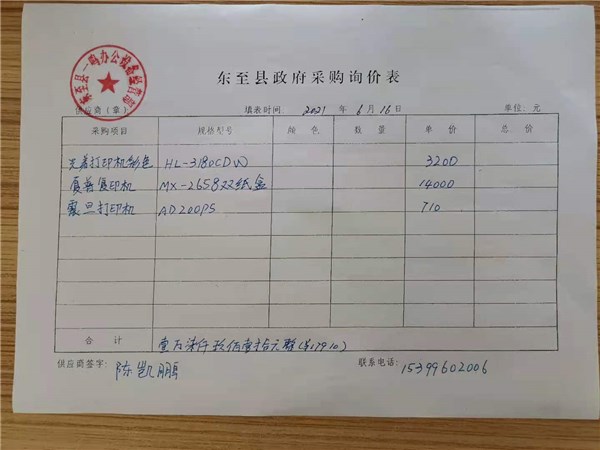 东至县一鸣办公设备经营部
东至县政府采购询价表
供应商（章） 填表时间 2021 年 6 月 16 日 单位：元
采购项目 规格型号 颜色 数量 单价 总价
打印机彩色 HL-3180CDW 3200
夏普复印机 MX-2658双纸盒 14000
震旦打印机 AD200PS 710
合计 壹万柒仟玖佰壹拾元整(¥17910)
供应商签字： 陈凯鹏 联系电话：15399602006